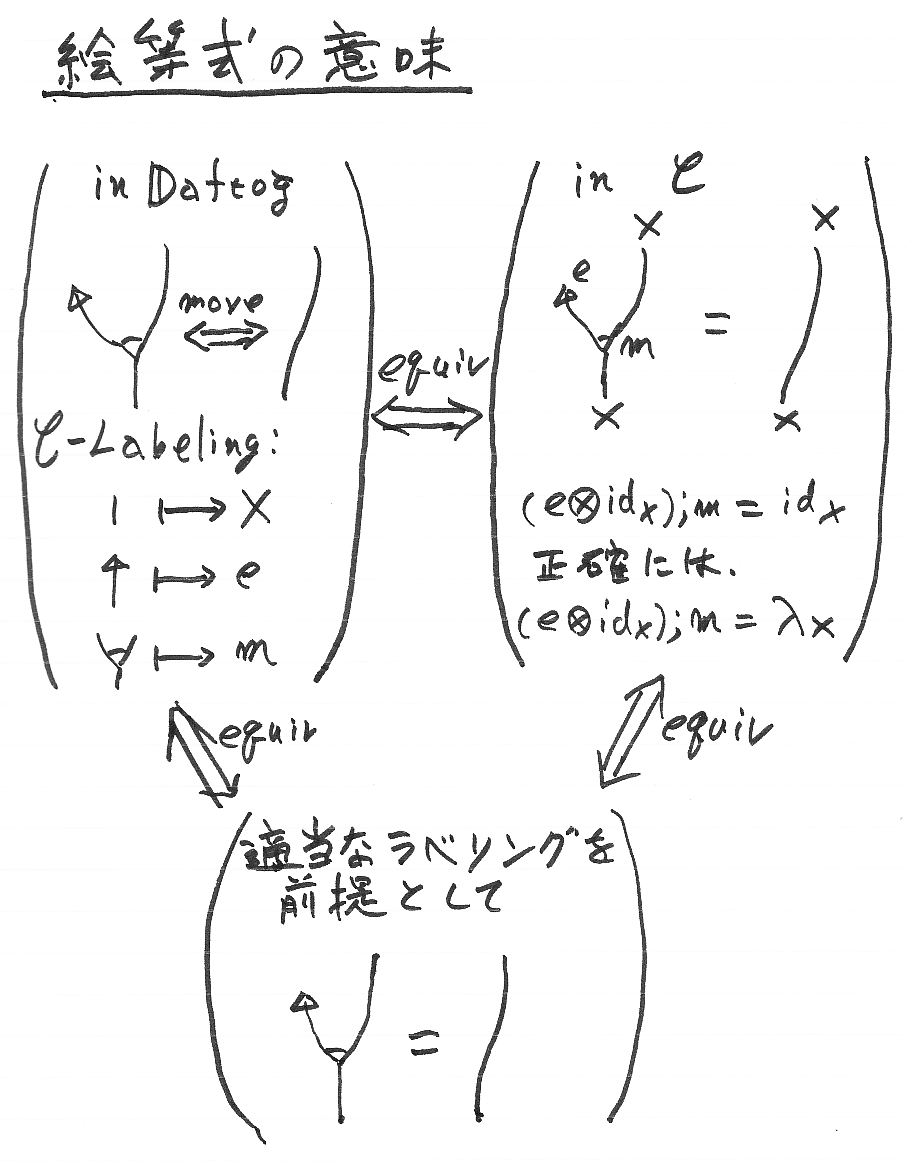 絵等式の意味
in Datrog
move
𝒞-Labeling:
| ⟼ X
↑ ⟼ e
⟼ m
equiv
in 𝒞
X
X
e
=
m
X
X
(e⊗id_X);m = id_X
正確には.
(e⊗id_X);m = λ_X
equiv
equiv
適当なラベリングを
前提として
=